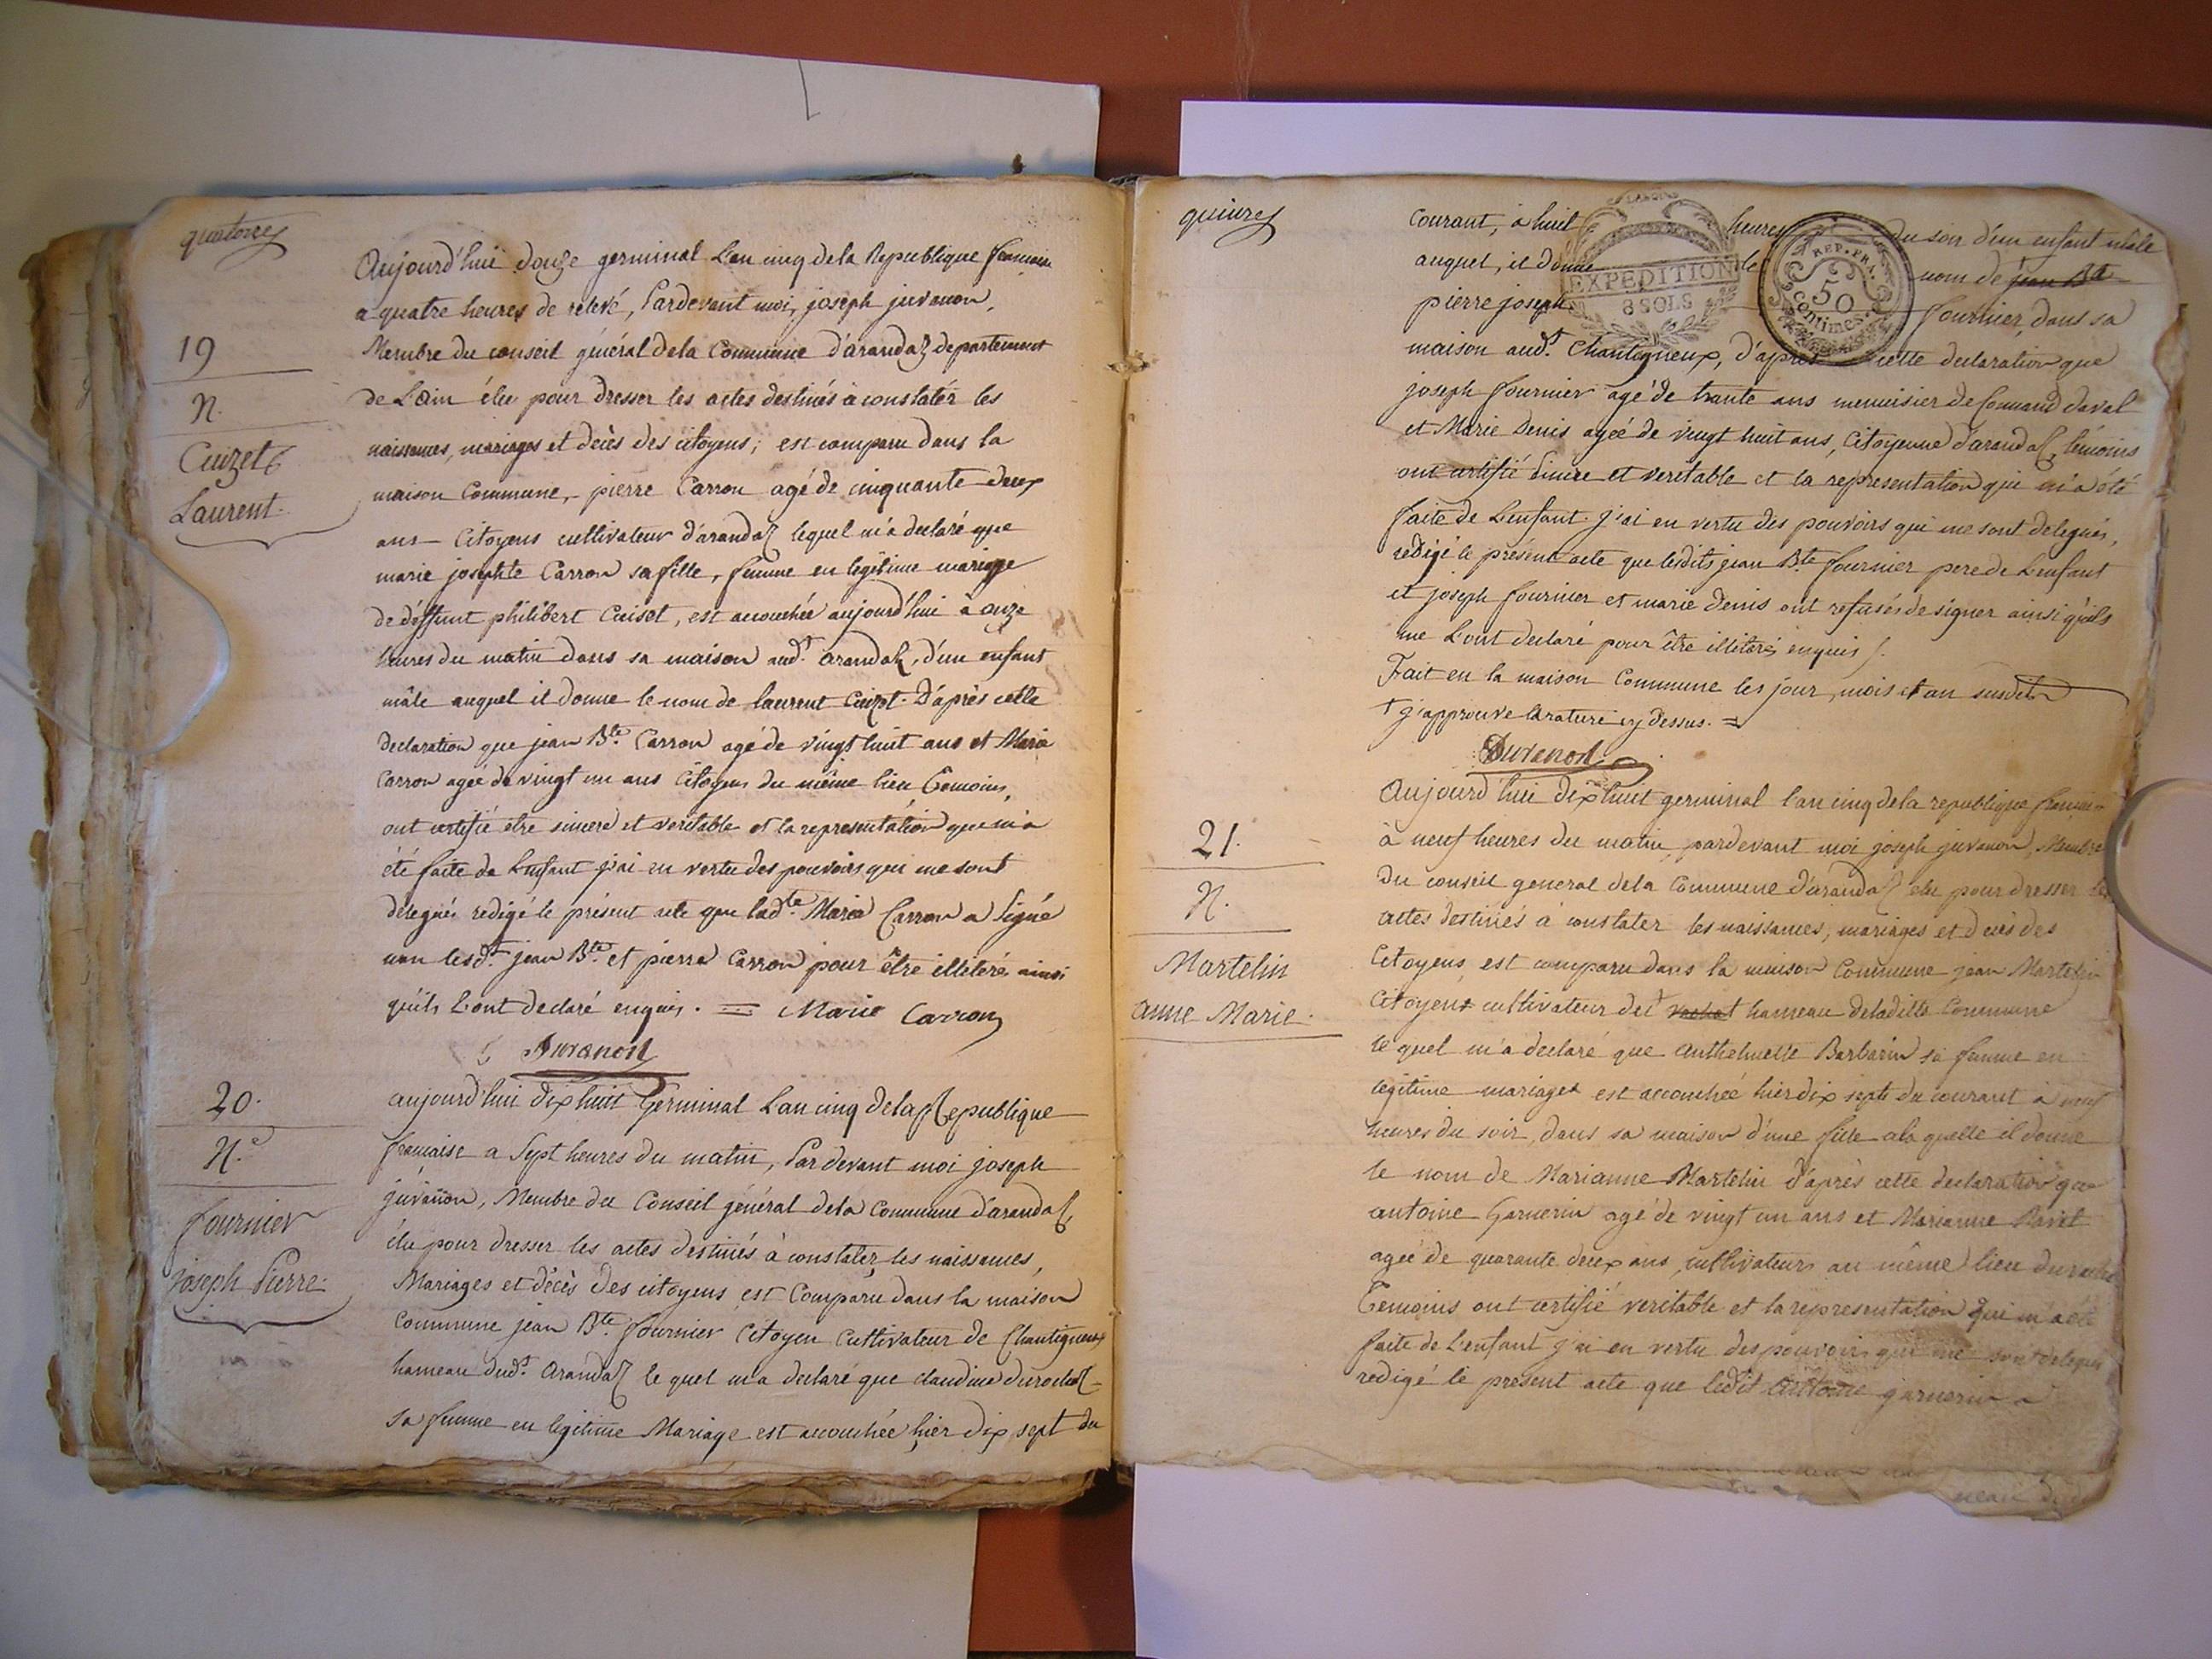 quatorze
19
N.
Cuzet
Laurent.
Aujourd'hui douze germinal L'an cinq dela Republique francaise
a quatre heures de relevé, Pardevant moi, joseph juvanon,
Membre du conseil général dela Commune d'arandaz departement
de L'ain élu pour dresser les actes destinés à constater les
naissances, mariages et decès des citoyens; est comparu dans la
maison Commune, pierre Carron agé de cinquante deux
ans Citoyens cultivateur d'arandaz lequel m'a declaré que
marie josephte Carron sa fille, femme en legitime mariage
de déffunt philibert Cuiset, est accouchée aujourd'hui à onze
heures du matin dans sa maison aud.t arandaz, d'un enfant
mâle auquel il donne le nom de laurent Cuizet. D'après cette
declaration que jean B.te Carron agé de vingt huit ans et Marie
Carron agée de vingt un ans Citoyens du même lieu Temoins,
ont certifié être sincere et veritable et la representation que m'a
été faite de L'enfant j'ai en vertu des pouvoirs qui me sont
delegués redigé le présent acte que lad.te Marie Carron a Signé
non lesd.t jean B.te et pierre Carron pour être illitéré ainsi
qu'ils L'ont declaré enquis. = Marie Carron
Juvanon
20.
N.e
fournier
joseph Pierre.
aujourd'hui dix huit Germinal L'an cinq dela Republique
francaise a Sept heures du matin, Par devant moi joseph
juvanon, Membre du Conseil général dela Commune d'arandaz,
élu pour dresser les actes destinés à constater les naissances,
Mariages et décès des citoyens est Comparu dans la maison
Commune jean B.te fournier Citoyen Cultivateur de Chantigneux
hameau dud.t arandaz le quel m'a declaré que claudine durochat
sa femme en legitime Mariage est accouchée hier dix sept du
quinze
courant, à huit heures du soir d'un enfant mâle
auquel, il donne le nom de jean Bte
pierre joseph fournier, dans sa
EXPEDITION
8 SOLS
REP. FRA.
50
centimes
maison aud.t Chantigneux, d'après cette declaration que
joseph fournier agé de trante ans menuisier de Connand daval
et Marie Denis agéé de vingt huit ans, Citoyenne d'arandaz, témoins
ont certifié sincere et veritable et la representation qui m'a été
faite de L'enfant. j'ai en vertu des pouvoirs qui me sont delegués,
redigé le présent acte que lesdits jean Bte fournier pere de L'enfant
et joseph fournier et marie Denis ont refusés de signer ainsi qu'ils
me L'ont declaré pour être illitérés enquis.
Fait en la maison Commune les jour, mois et an susdit
+ j'approuve la rature cy dessus. =
Juvanon
21.
N.
Martelin
anne Marie.
Aujourd'hui dix huit germinal l'an cinq dela republique
à neuf heures du matin, pardevant moi joseph juvanon, Membre
du conseil general dela Commune d'arandaz elu pour dresser les
actes destinés à constater les naissances, mariages et decès des
Citoyens est comparu dans la maison Commune jean Martelin
Citoyens cultivateur hameau deladitte Commune
le quel m'a declaré que Anthelmette Barbarin sa femme en
legitime mariage est accouchée hier dix sept du courant à neuf
heures du soir, dans sa maison d'une fille ala quelle il donne
le nom de Marianne Martelin d'après cette declaration que
antoine Garnerin agé de vingt un ans et Marianne Ravet
agée de quarante deux ans, cultivateurs au même lieu
Temoins ont certifié veritable et la representation qui m'a été
faite de L'enfant j'ai en vertu des pouvoirs qui me sont delegués
redigé le present acte que ledit Antoine garnerin a